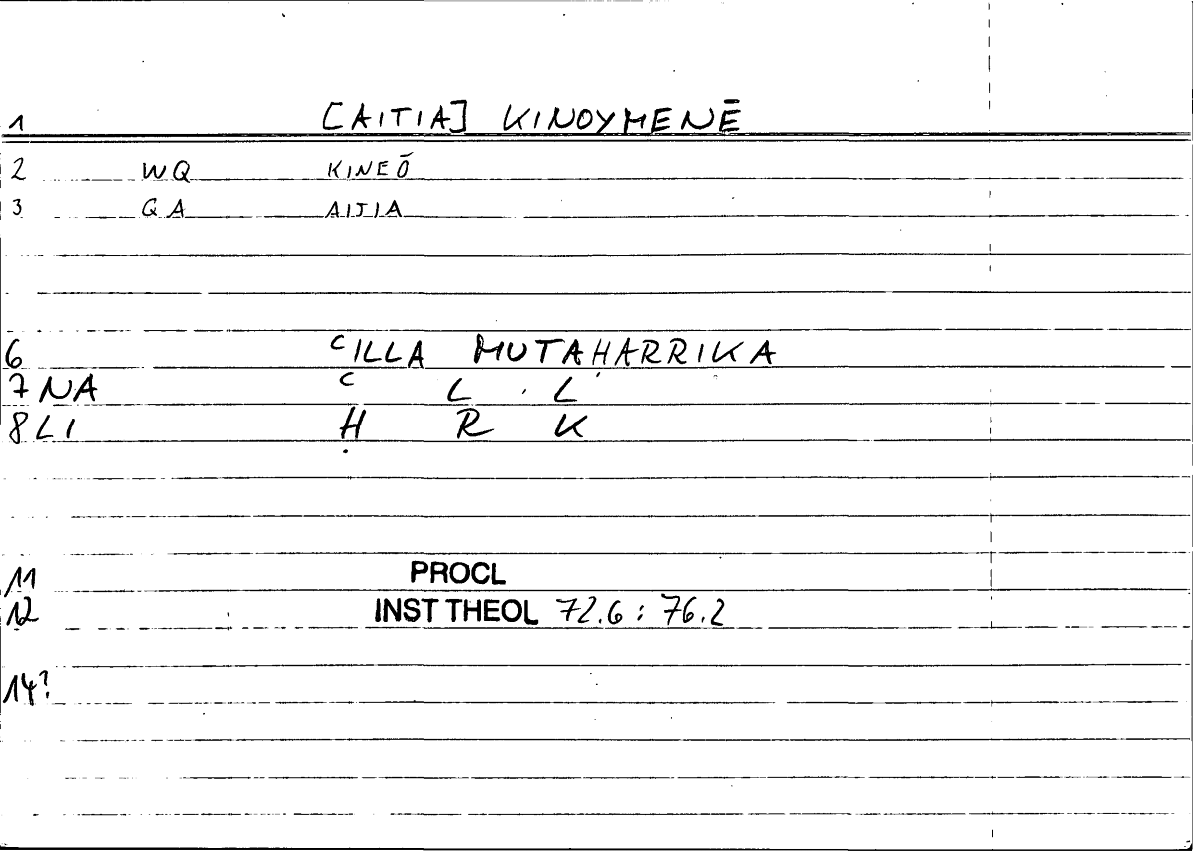 1 [AITIA] KINOYMENĒ
2 WQ KINEŌ
3 QA AITIA
6 ʿILLA MUTAḤARRIKA
7 NA ʿ L L
8 LI Ḥ R K
11 PROCL
12 INST THEOL 72.6 : 76.2
14?